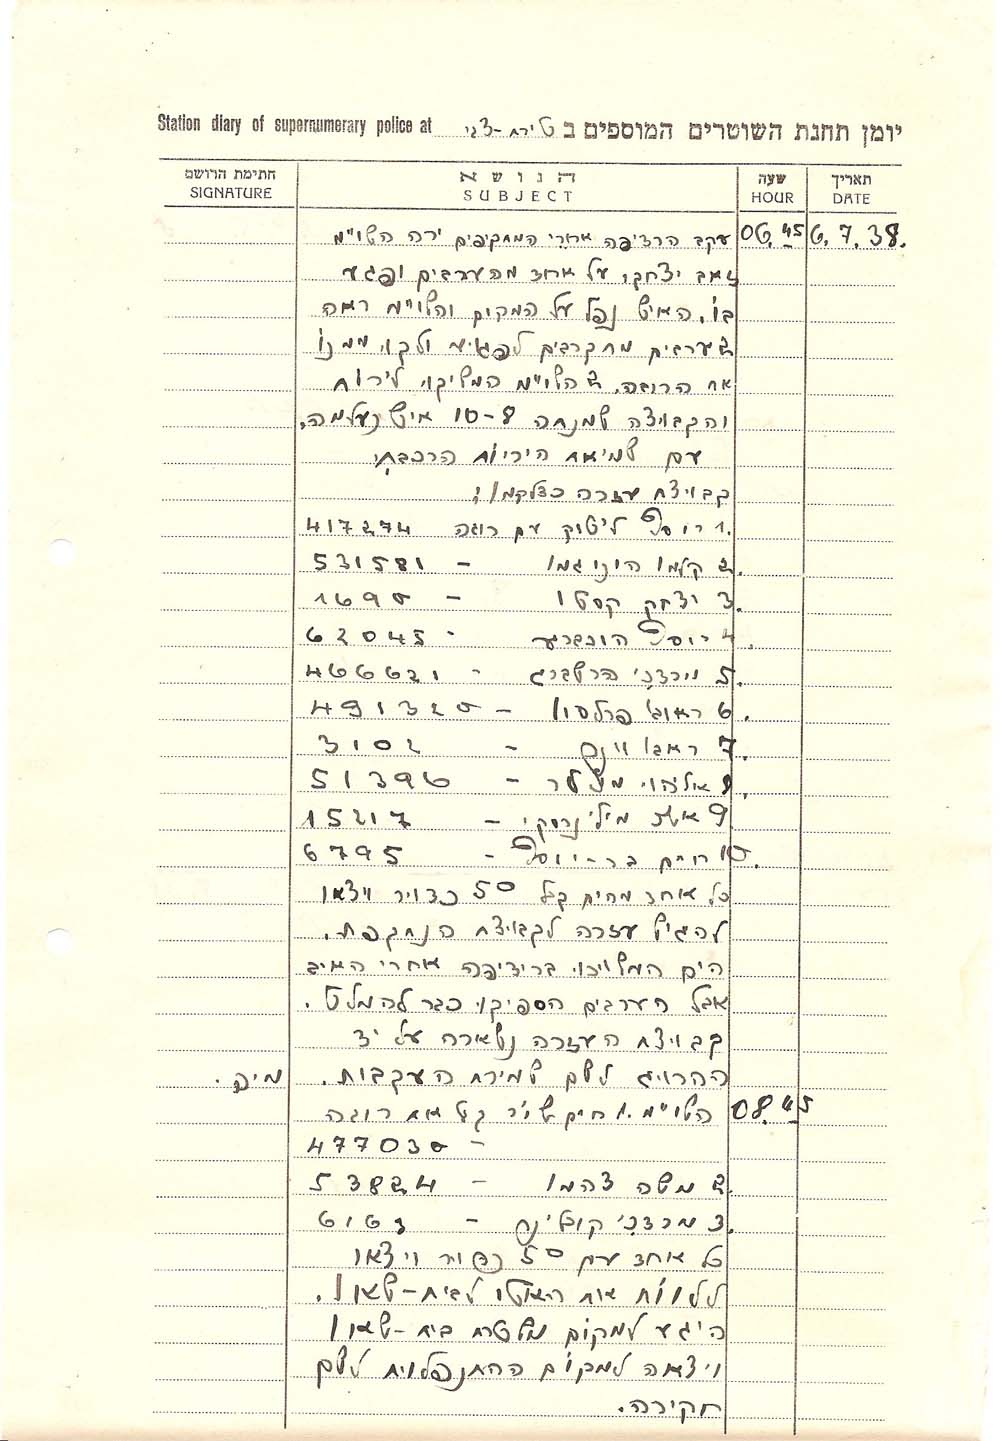 Station diary of supernumerary police at טירת-צבי יומן תחנת השוטרים המוספים ב
חתימת הרושם הנושא שעה תאריך
SIGNATURE SUBJECT HOUR DATE
6.7.38. 06.45 עקב הרדיפה אחרי המתקיפים ירה השו"מ
זאב יצחקי על אחד מהערבים ופגע
בו. האיש נפל על המקום והשו"מ ראה
2 ערבים מתקרבים לפגוש ולקוי ממנו
את הרובה. 2 השו"מ המשיכו לירות
והקבוצה שמנתה 8-10 איש נעלמה.
עם שמיעת היריות הרכבתי
קבוצת עזרה כדלקמן:
1. יוסף ליטוק עם רובה 417274
2. קלמן היוניגמן - 531581
3. יצחק קסטן - 1690
4. יוסף הוכברג - 62045
5. מרדכי הרשברג - 466621
6. ראובן פרלסון - 491320
7. ראובן וינס - 3102
8. אליהו מילר - 51396
9. אשר מילינרסקי - 15217
10. חיים בר-יוסף - 6795
כל אחד מהם קבל 50 כדור ויצאו
להגיש עזרה לקבוצה הנתקפת.
הם המשיכו ברדיפה אחרי האויב
אבל הערבים הספיקו כבר להמלט.
קבוצת העזרה נשארה על יד
ההרוג לשם שמירת העקבות.
08.45 השו"מ 1. חיים שור קבל את רובה
477030 -
2. משה צהמן - 53824
3. מרדכי קופלינס - 6163
כל אחד עם 50 כדור ויצאו
ללוות את האוטו לבית-שאן.
היגע למקום משטרת בית-שאן
ויצאה למקום ההתנפלות לשם
חקירה.